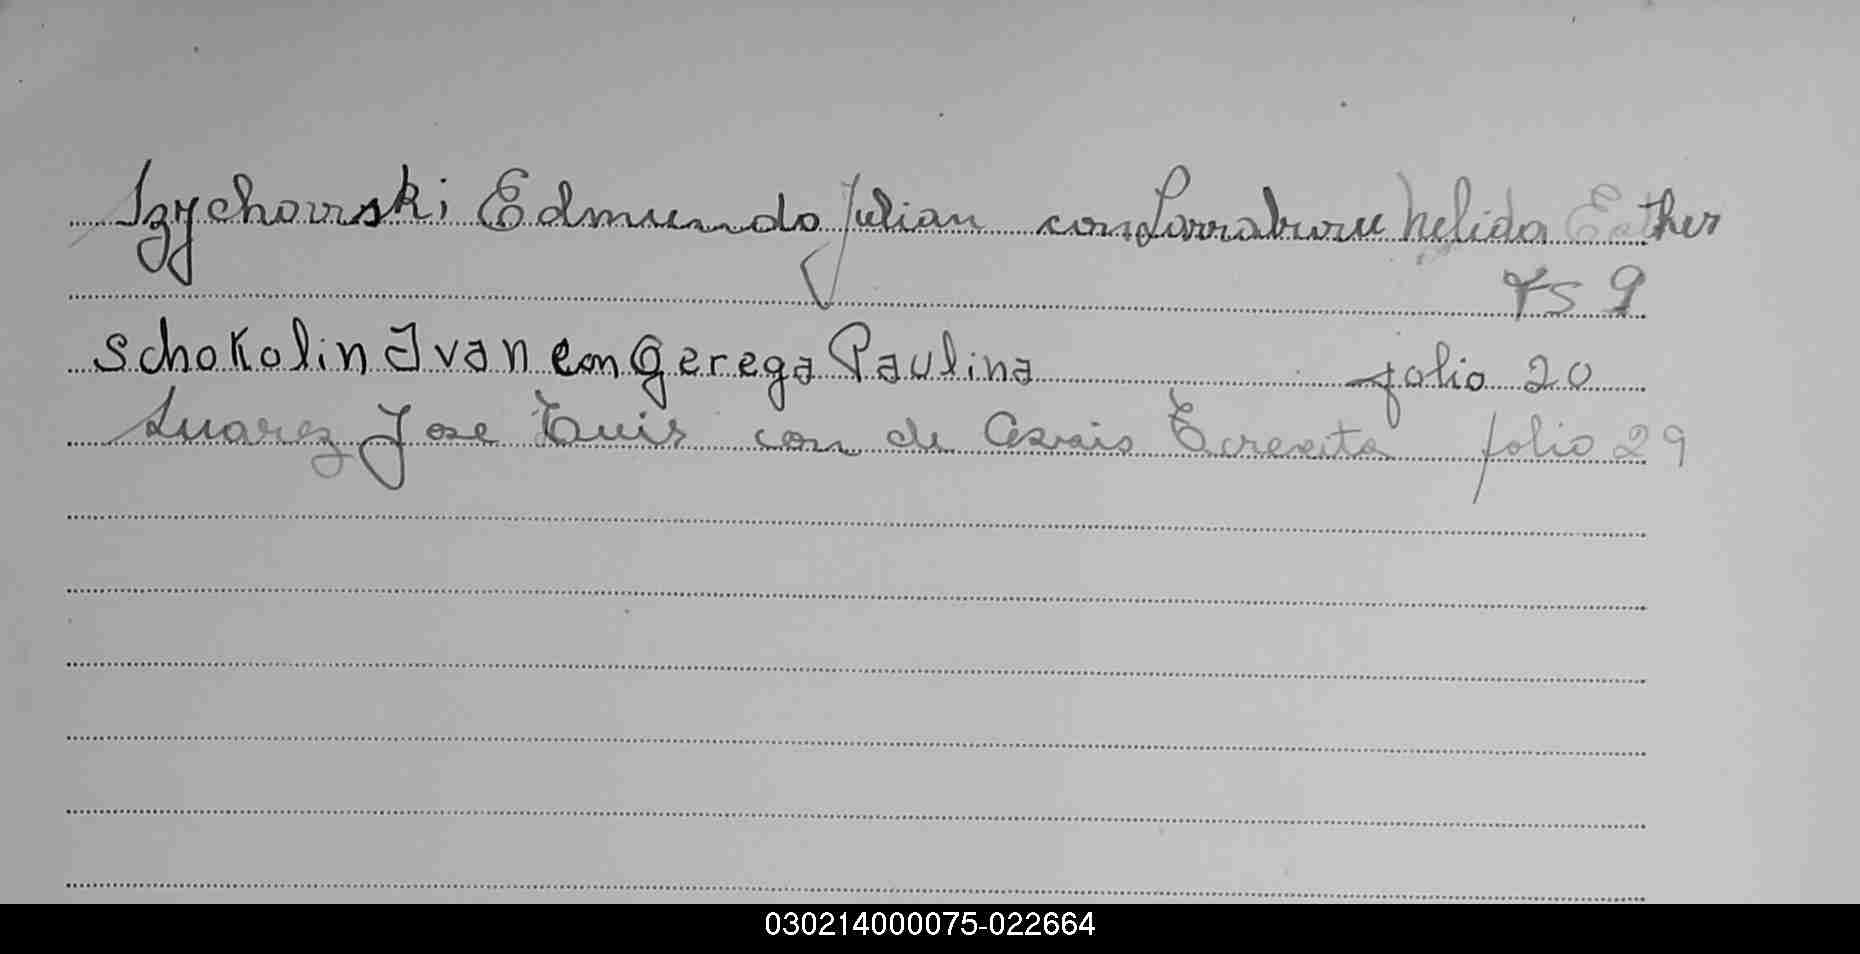 Szychowski Edmundo Julian con Larraburu Nelida Esther
FS 9
Schokolin Ivan con Gerega Paulina folio 20
Suarez Jose Luis con de Assis Teresita folio 29
030214000075-022664